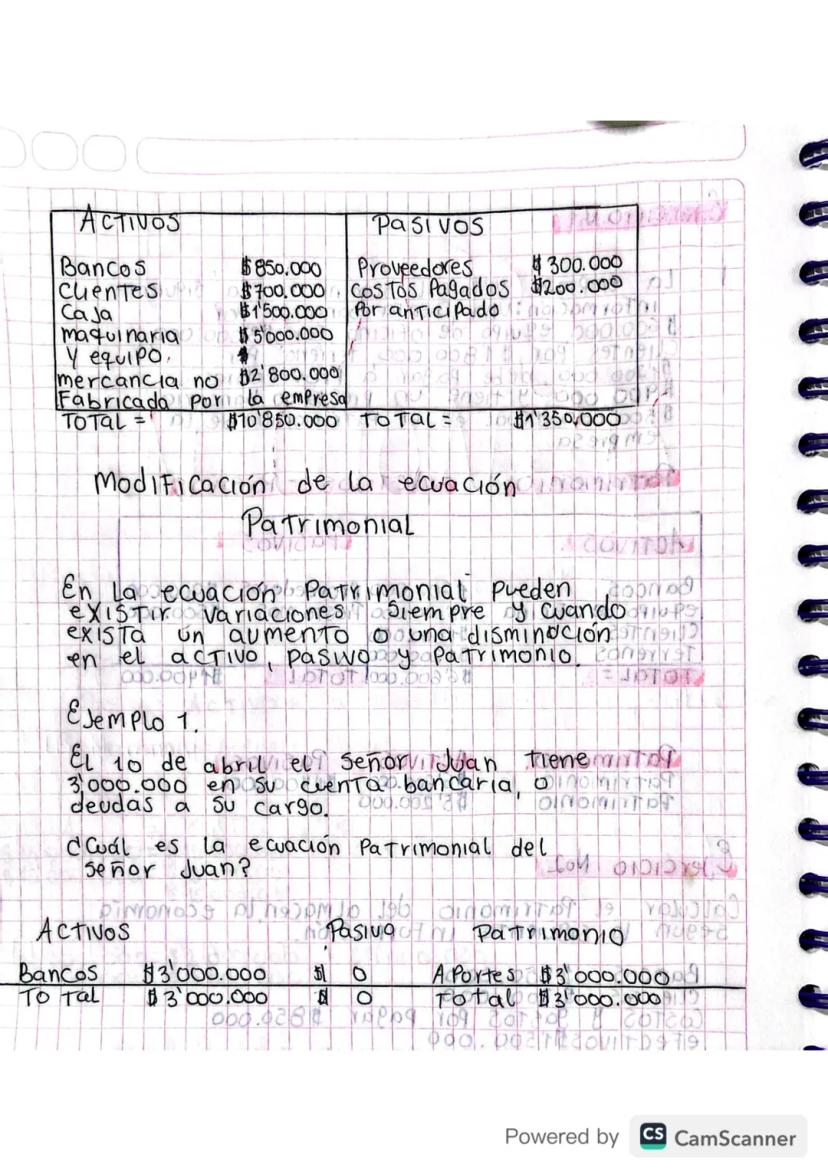 ACTIVOS PASIVOS
Bancos $850.000 Proveedores $300.000
Clientes $700.000 Costos Pagados $200.000
Caja $1'500.000 Por anticipado
maquinaria $5'000.000
y equipo.
mercancia no $2'800.000
Fabricada por la empresa
TOTAL = $10'850.000 TOTAL = $1'350.000
Modificación de la ecuación
Patrimonial
En la ecuación Patrimonial Pueden
existir variaciones siempre y cuando
exista un aumento o una disminución
en el activo, pasivo y patrimonio.
Ejemplo 1.
El 10 de abril el señor Juan tiene
3'000.000 en su cuenta bancaria, o
deudas a su cargo.
¿Cuál es la ecuación Patrimonial del
señor Juan?
ACTIVOS Pasivo Patrimonio
Bancos $3'000.000 $ 0 Aportes $3'000.000
Total $3'000.000 $ 0 Total $3'000.000
Powered by CS CamScanner